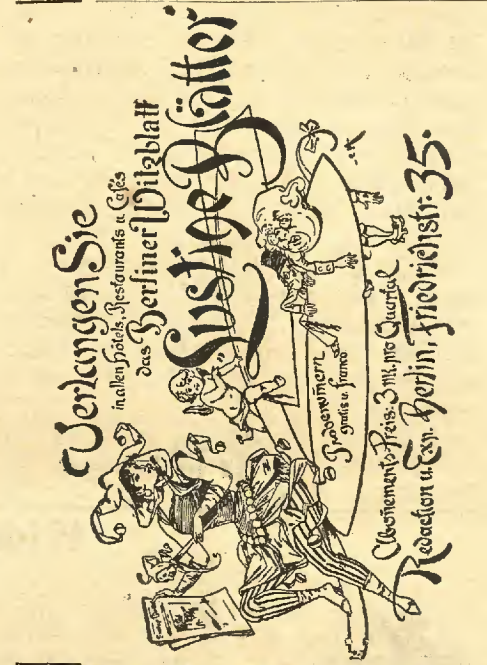 Verlangen Sie
in allen Hôtels, Restaurants u. Cafés
das Berliner Witzblatt
Lustige Blätter
Probenummern
gratis u. franco
Abonements-Preis: 3 Mk. pro Quartal
Redaction u. Exp. Berlin, Friedrichstr: 35.